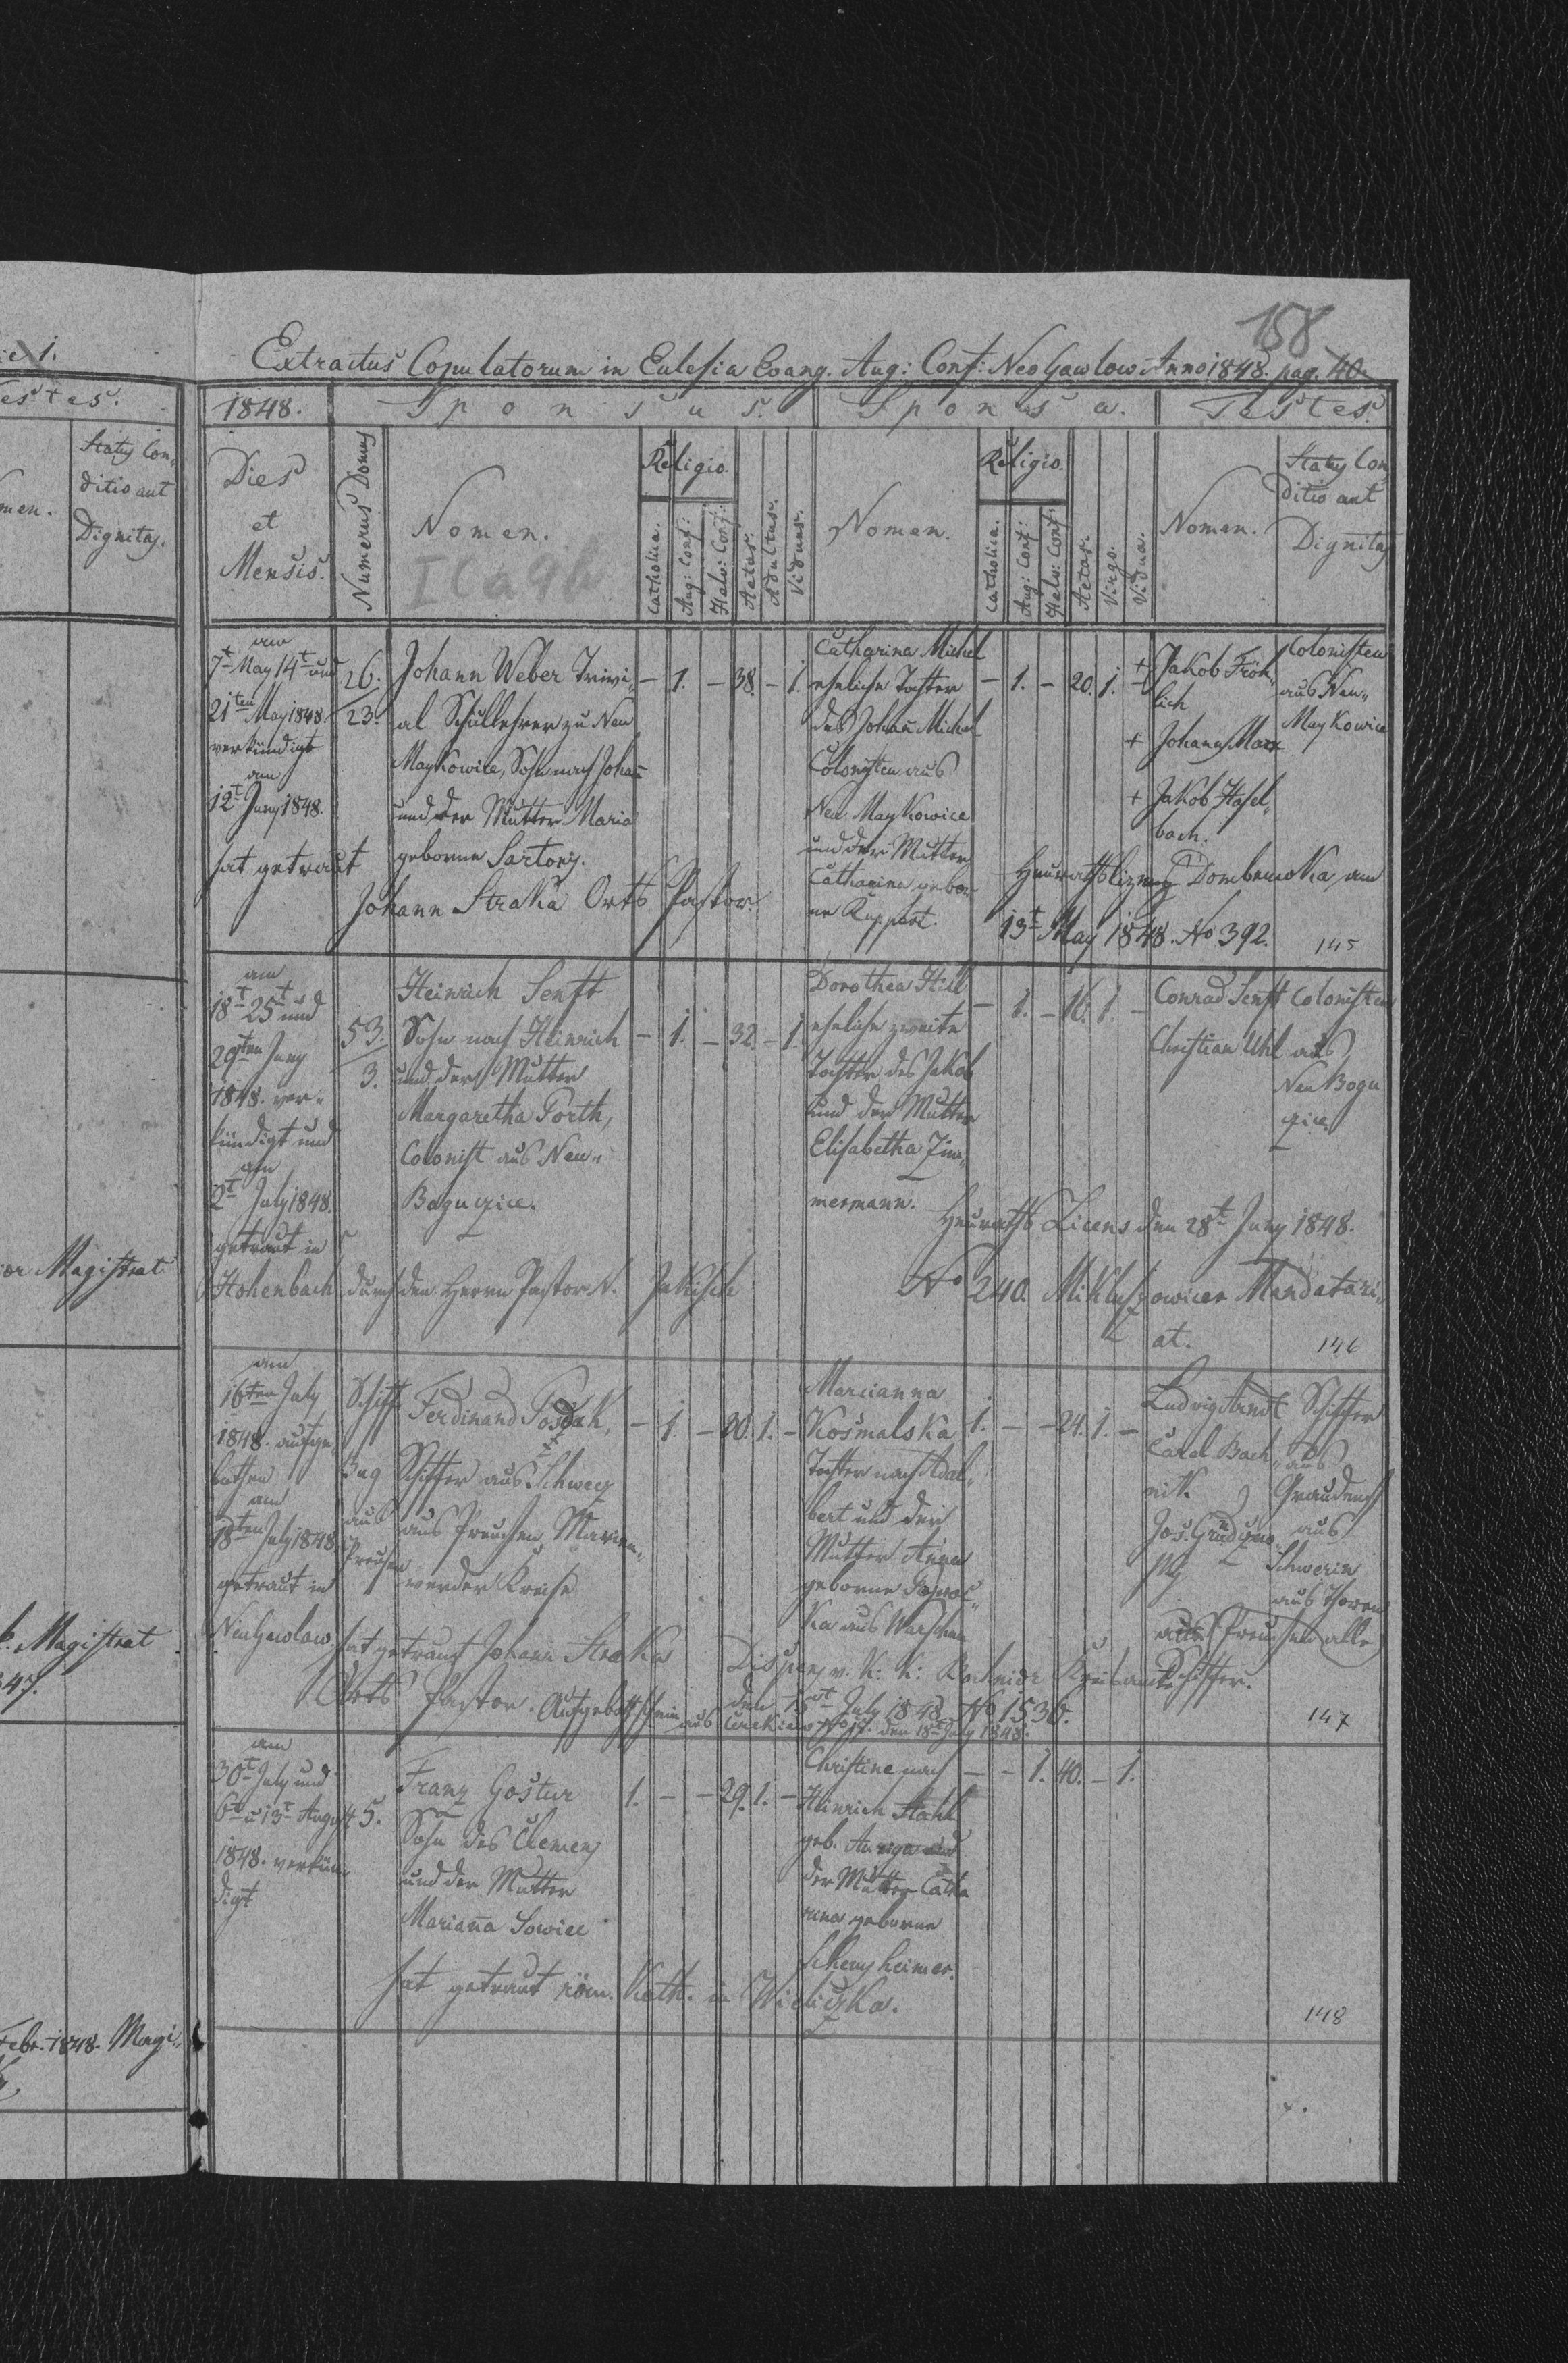 158
Extractus Copulatorum in Eclesia Evang. Aug: Conf: Neo Gawlow Anno 1848. pag. 40.
1848.
Sponsus.
Sponsa.
Testes.
Dies
et
Mensis.
Numerus Domus
Nomen.
Religio.
Catholica.
Aug: Conf:
Helv: Conf:
Aetas.
Adultus.
Viduus.
Nomen.
Religio.
Catholica.
Aug: Conf:
Helv: Conf:
Aetas.
Virgo.
Vidua.
Nomen.
Status Con,
ditio aut
Dignitas
I C a 9 b
am
7t May 14t und
21ten May 1848.
verkündigt
am
12t Juny 1848.
hat getraut
26.
23.
Johann Weber Trivi„
al Schullehrer zu Neu
Maykowice, Sohn nach Johañ
und der Mutter Maria
geborne Sartory.
Johann Straka Orts Pastor.
– 1. – 38. – 1.
Catharina Michel
eheliche Tochter
des Johañ Michel
Colonisten aus
Neu Maykowice
und der Mutter
Catharina gebor„
ne Ruppert.
– 1. – 20. 1.
+ Jakob Fröh„
lich
+ Johann Marx
+ Jakob Hasel„
bach.
Colonisten
aus Neu„
Maykowice
Dombrowka am
13t May 1848. No 392.
145
am
18t 25t und
29ten Juny
1848. ver„
kündigt und
am
2t July 1848.
getraut in
Hohenbach durch den Herrn Pastor N. Jakisch
53.
3.
Heinrich Senft
Sohn nach Heinrich
und der Mutter
Margaretha Porth,
Colonist aus Neu„
Boguczice.
– 1. – 32. – 1.
Dorothea Hill
eheliche zweite
Tochter des Jakob
und der Mutter
Elisabetha Zim„
mermann.
– 1. – 16. 1. –
Conrad Senft
Christian Uhl
Colonisten
aus
Neu Bogu
czice
Heuraths Licens den 28t Juny 1848.
No 240. Mikluszowicer Mandatari„
at.
146
am
16ten July
1848. aufge„
bothen
am
18ten July 1848
getraut in
Neu Gawlow.
Schiff
Bug
aus
Preußen
Ferdinand
Schiffer aus Schwecz
aus Preußen Marien„
werder Kreise
– 1. – 30. 1. –
Marcianna
Kośmalska
Tochter nach Adal„
bert und der
Mutter Anna
geborne
ka aus Warschau
1. – – 24. 1. –
Ludwig Arndt
Carl Bach„
nik
Schiffer
aus
Graudenz
aus
Schwerin
aus Thoren
aus Preußen alle
Schiffer.
hat getraut Johann Straka
Orts Pastor.
Dispens v. K: K: Bochnier Kreisamt
den 15t July 1848 No 1536.
den 18t July 1848.
147
am
30t July und
6t u 13t August
1848. verkün„
digt
5.
Franz Gostur
Sohn des Clemens
und der Mutter
Marianna Sowice
hat getraut röm. Kath. in Wieliczka.
1. – – 29. 1. –
Christine nach
Heinrich Stahl
geb.
der Mutter Catha
rina geborne
– – 1. 40. – 1.
148
Testes.
Status Con„
ditio aut
Dignitas.
Magistrat
Magistrat
Febr. 1848. Magi„